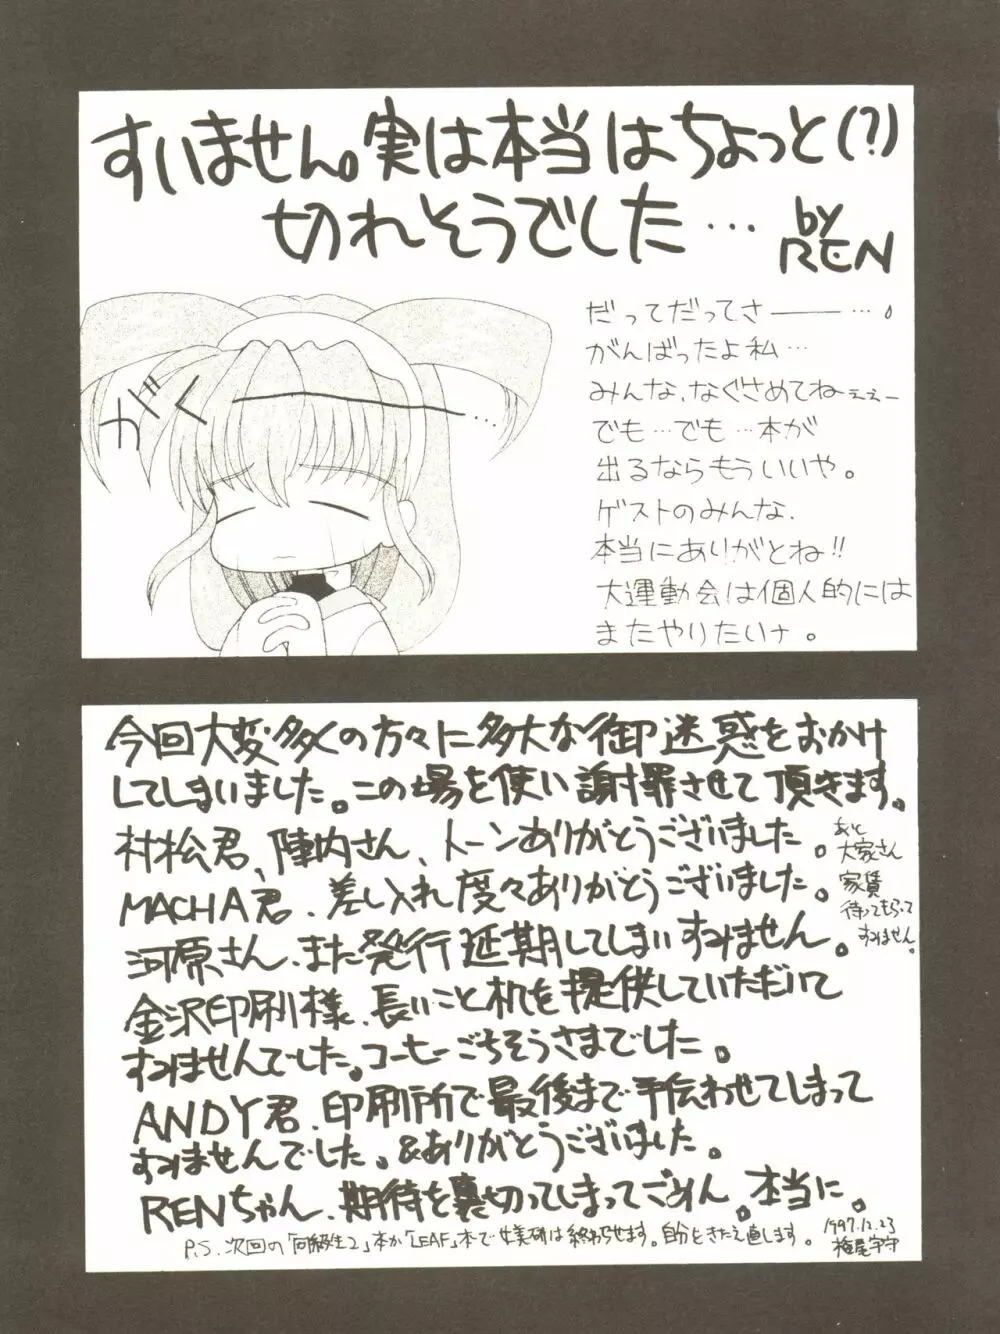 すいません。実は本当はちょっと(?)
切れそうでした…
by
REN
がくーー…
だってだってさ――…。
がんばったよ私…
みんな、なぐさめてねぇぇー
でも…でも…本が
出るならもういいや。
ゲストのみんな、
本当にありがとね!!
大運動会は個人的には
またやりたいナ。
今回大変多くの方々に多大な御迷惑をおかけ
してしまいました。この場を使い謝罪させて頂きます。
村松君、陣内さん、トーンありがとうございました。
MACHA君、差し入れ度々ありがとうございました。
河原さん、また発行延期してしまいすみません。
あと
大家さん
家賃
待ってもらって
すみません。
金沢印刷様、長いこと机を提供していただいて
すみませんでした。コーヒーごちそうさまでした。
ANDY君、印刷所で最後まで手伝わせてしまって
すみませんでした。&ありがとうございました。
RENちゃん、期待を裏切ってしまってごめん。本当に。
P.S. 次回の「同級生2」本か「LEAF」本で女美研は終わらせます。自分をきたえ直します。
1997.12.23